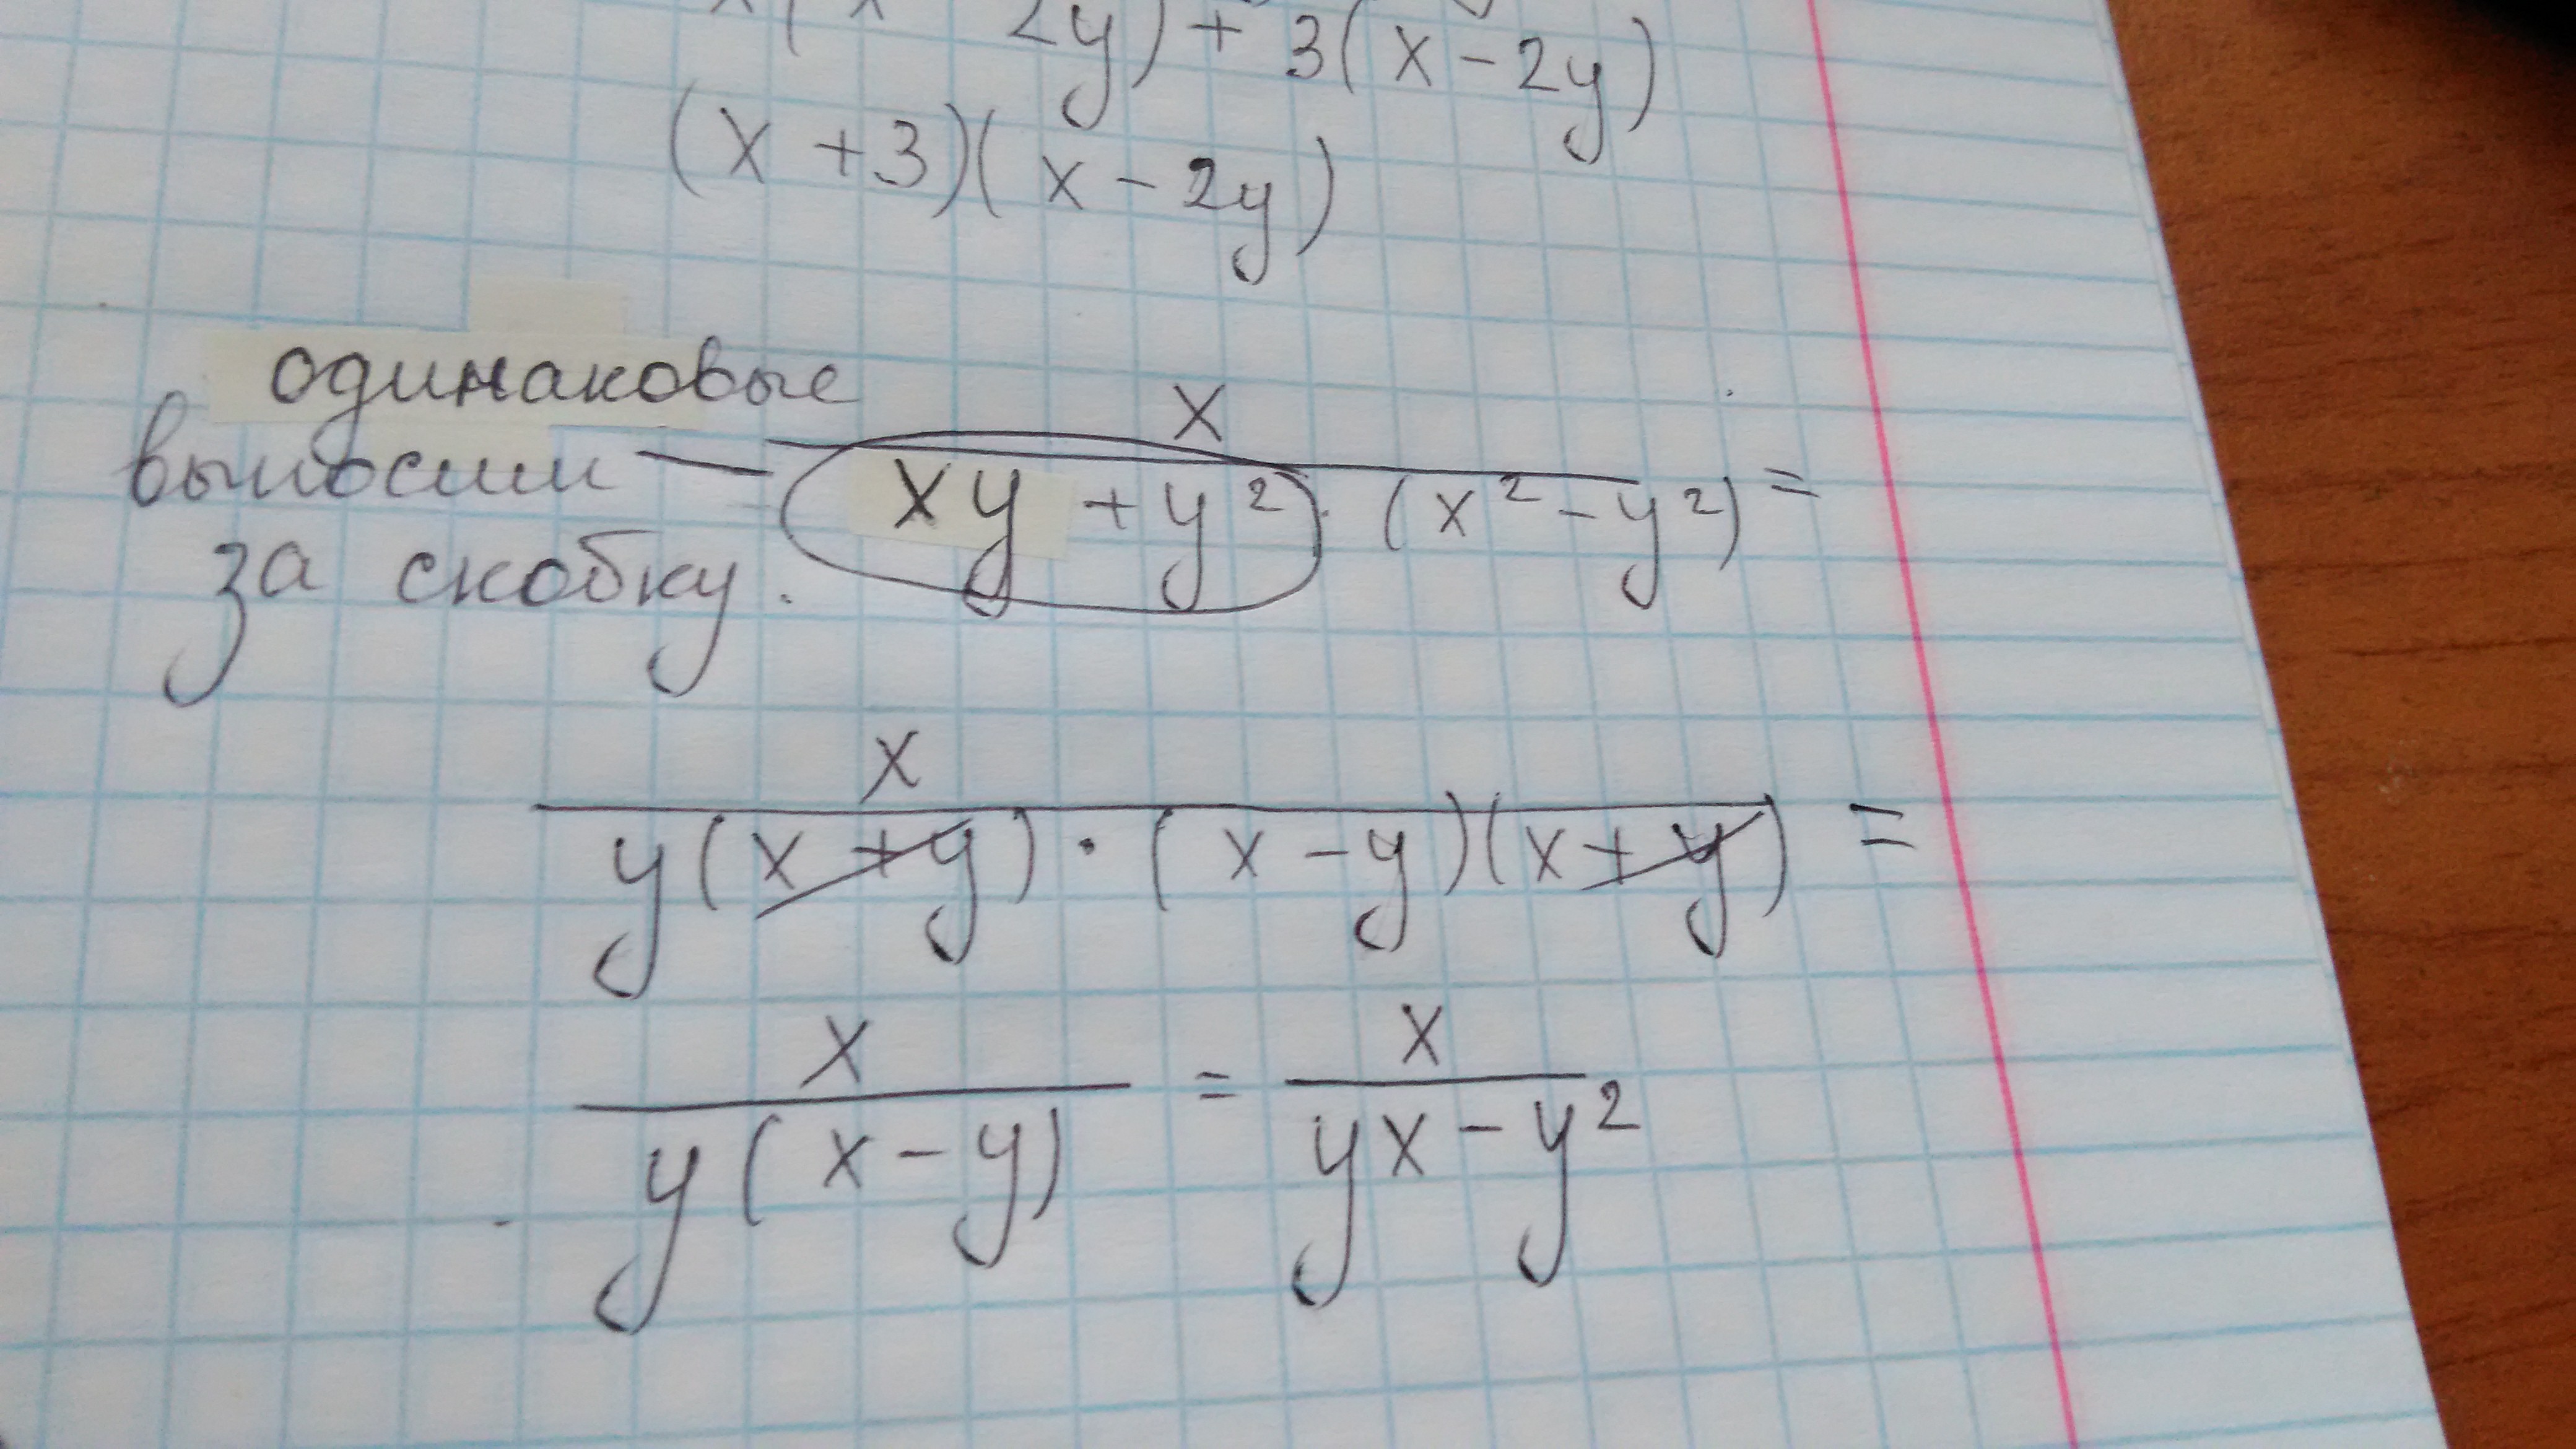 2y) + 3(x - 2y)
(x + 3)(x - 2y)
одинаковые
выносим
за скобку.
x / xy + y² · (x² - y²) =
x / y(x + y) · (x - y)(x + y) =
x / y(x - y) = x / yx - y²